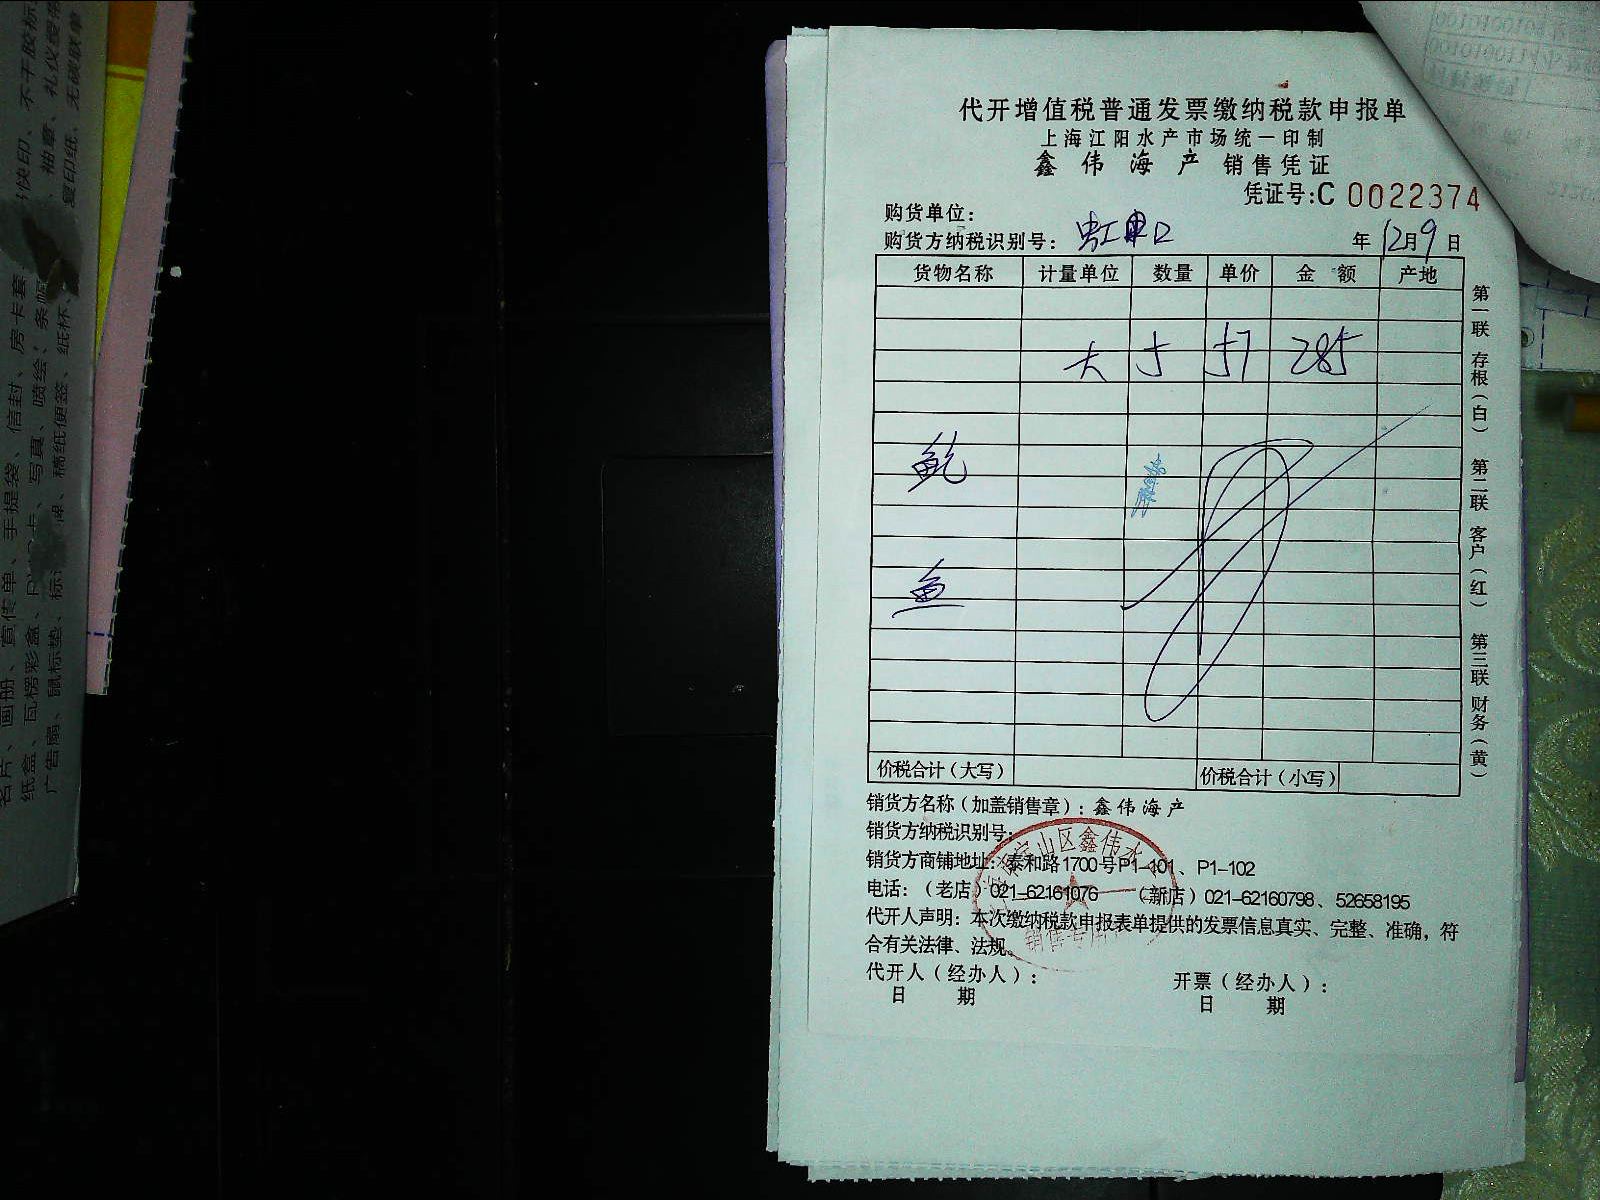 代开增值税普通发票缴纳税款申报单
上海江阳水产市场统一印制
鑫伟海产 销售凭证
凭证号:C 0022374
购货单位:
购货方纳税识别号: 虹口
年 12月9日
货物名称 计量单位 数量 单价 金额 产地
大 5 57 285
鲍
鱼
价税合计(大写) 价税合计(小写)
第一联 存根(白) 第二联 客户(红) 第三联 财务(黄)
销货方名称(加盖销售章):鑫伟海产
销货方纳税识别号:
销货方商铺地址: 泰和路1700号P1-101、P1-102
电话:(老店)021-62161076 (新店)021-62160798、52658195
代开人声明:本次缴纳税款申报表单提供的发票信息真实、完整、准确,符
合有关法律、法规。
代开人(经办人): 开票(经办人):
日 期 日 期
宝山区鑫伟水
销售专用
快印、不干胶标
、抽章、礼仪绶带
复印纸、无碳联单
名片、画册、宣传单、手提袋、信封、房卡套
纸盒、瓦楞彩盒、PVC卡、写真、喷绘、条幅
广告扇、鼠标垫、标 牌、稿纸便签、纸杯、